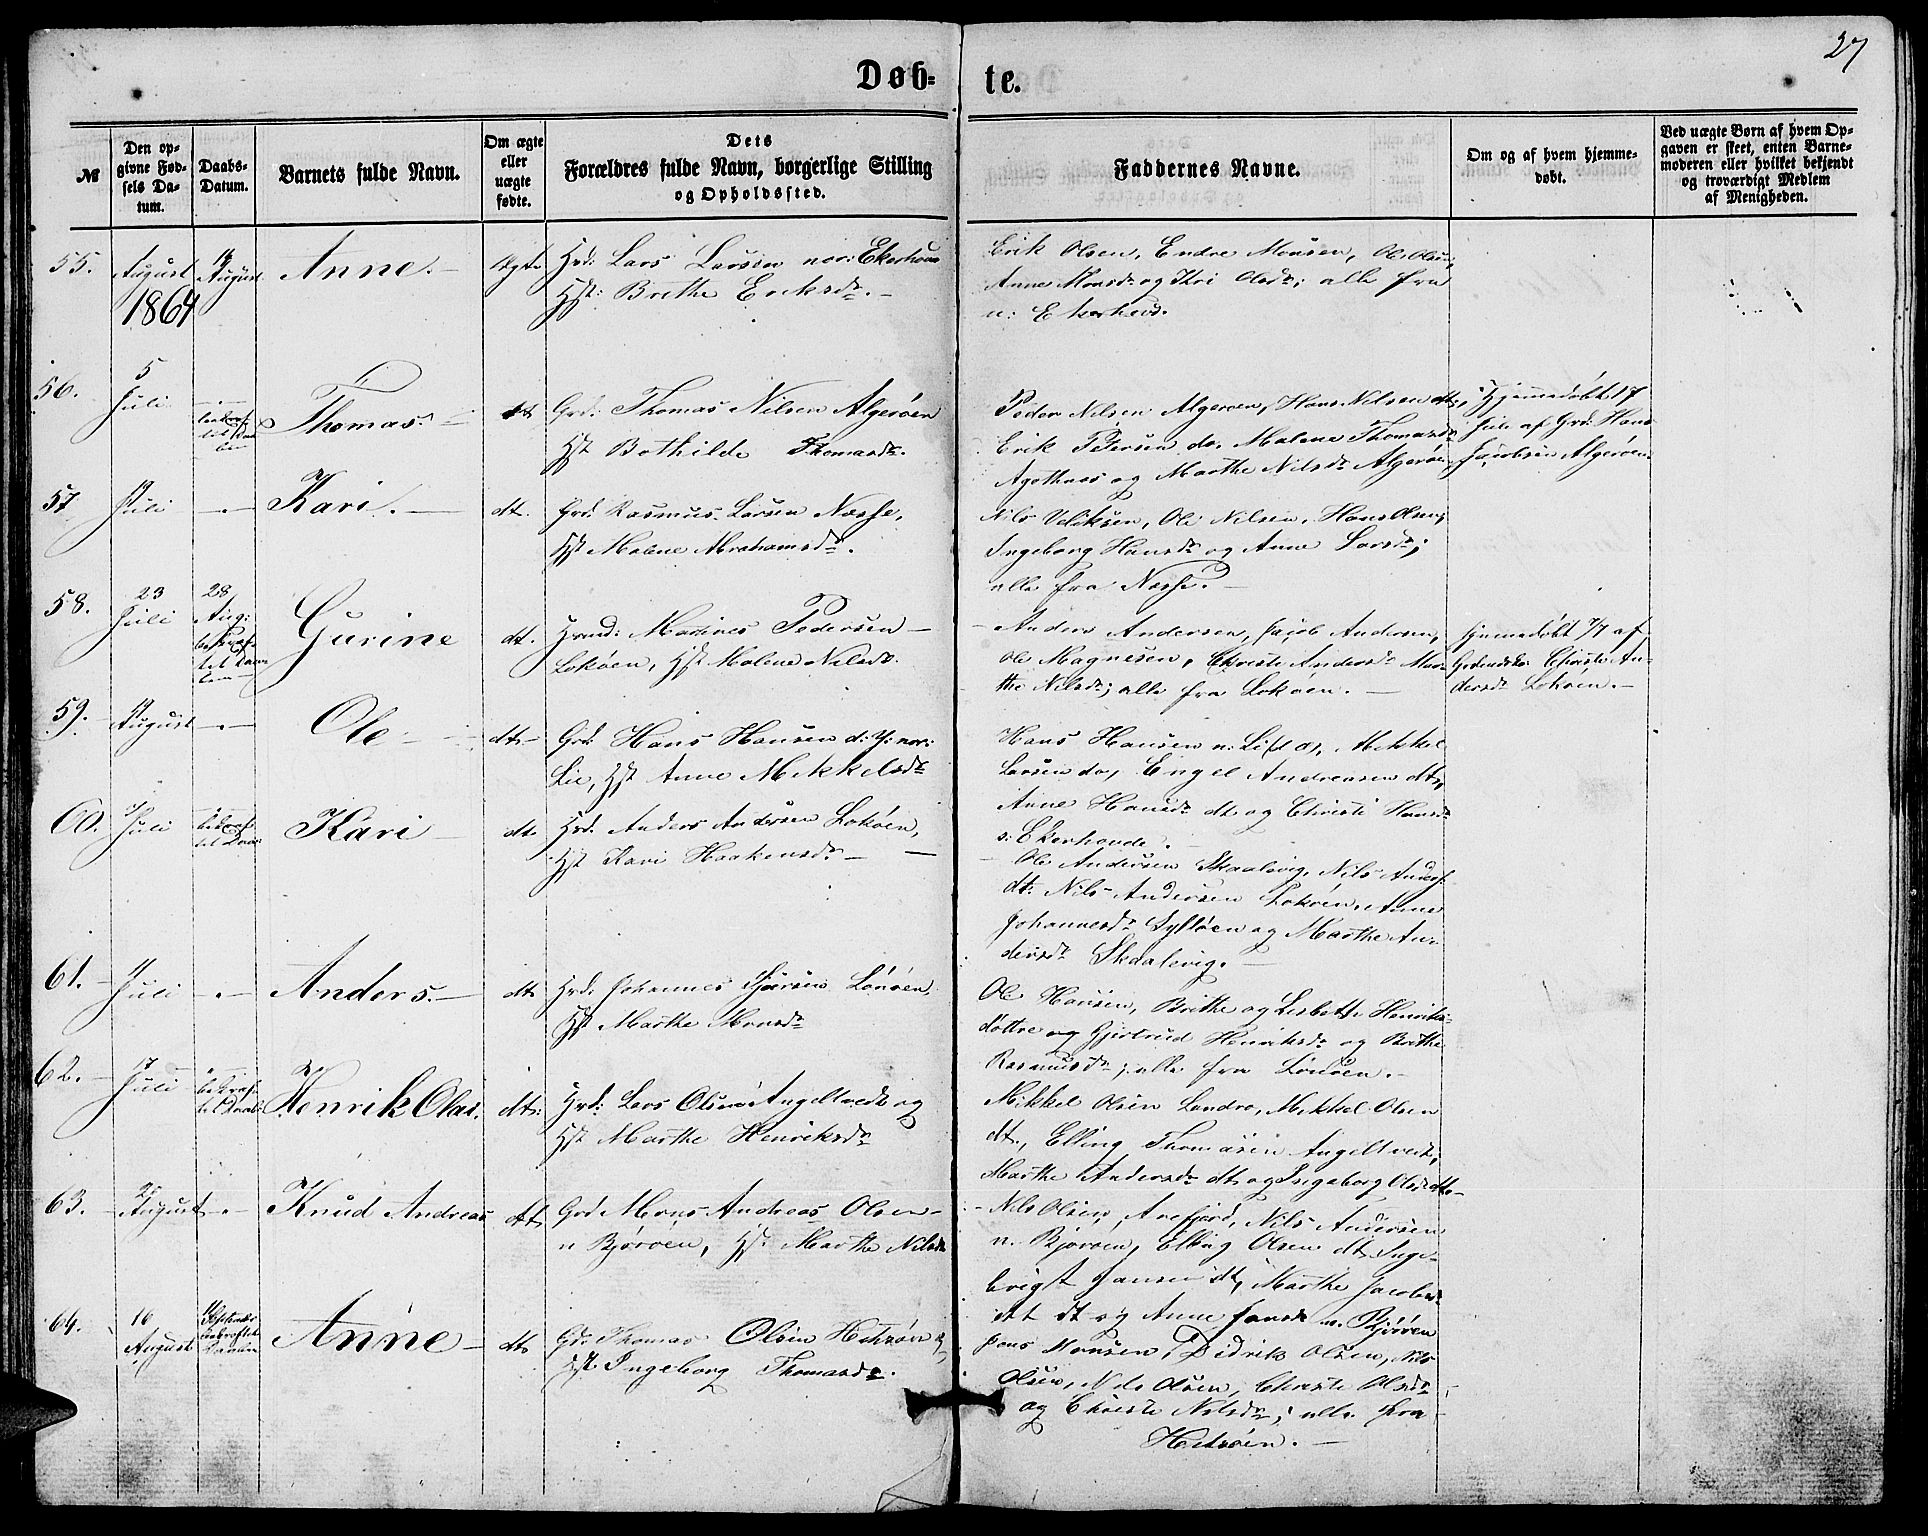 27
Døb- te.
№
Den opgivne Fødsels Datum.
Daabs-Datum.
Barnets fulde Navn.
Om ægte eller uægte fødte.
Dets Forældres fulde Navn, borgerlige Stilling og Opholdssted.
Faddernes Navne.
Om og af hvem hjemmedøbt.
Ved uægte Børn af hvem Opgaven er skeet, enten Barnemoderen eller hvilket bekjendt og troværdigt Medlem af Menigheden.
55. August 1864 14 August Anne. Ægte
Hrd: Lars Larsen nor: Ekerhovd
Hst: Brithe Eriksdr.
Erik Olsen, Endre Monsen, Ole Olsen,
Anne Monsdr og Olsdr; alle fra
n: Ekerhovd.
56. 5 Juli Thomas. dt
Grd: Thomas Nilsen Algerøen
Hst Bothilde Thomasdr.
Peder Nilsen Algerøen, Hans Nilsen dt,
Erik Petersen do, Malene Thomasdr
Agothnes og Marthe Nilsdr Algerøen
Hjemmedøbt 17
Juli af Grd: Hans
Jacobsen Algerøen
57 19 Juli Kari. dt.
Grd: Rasmus Larsen Næsse,
Hst Malene Abrahamsdr.
Nils Olsen, Ole Nilsen, Hans Olsen,
Ingeborg Hansdr og Anne Larsdr;
alle fra Næsse.
58. 23 Juli 28 Aug: Gurine dt.
Marines Pedersen
Lokøen, Hst Malene Nilsdr.
Anders Andersen, Jacob Andersen,
Ole Magnesen, Christi Andersdr Mar-
the Nilsdr; alle fra Lokøen.
hjemmedøbt af
Christi An-
dersdr Lokøen.
59. 19 August Ole dt
Grd: Hans Hansen d: y: nor:
Lie, Hst Anne Mikkelsdr
Hans Hansen n: Lie, Mikkel
Larsen do, Engel Andreasen dt,
Anne Hansdr dt og Christi Hansdr
s: Ekerhovde.
60. Juli Kari dt.
Hrd. Anders Andersen Lokøen,
Hst Kari Haakensdr
Ole Andersen Skaalevig, Nils Anders.
dt: Nils Andersen Lokøen, Anne
Johannesdr Syltøen og Marthe An-
dersdr Skaalevig.
61. 11 Juli Anders. dt
Hrd. Johannes Lønøen,
Hst Marthe Monsdr
Ole Hansen, Brithe og Lisbeth Henriks-
døttre og Gjertrud Henriksdr og Brithe
Rasmusdr; alle fra Lønøen.
62. 17 Juli Henrik Olai. dt:
Hrd: Lars Olsen Angeltvedt og
Hst Marthe Henriksdr
Mikkel Olsen Landro, Mikkel Olsen
dt., Elling Thomasen Angeltvedt,
Marthe Andersdr dt og Ingeborg Olsdr dto
63. August Knud Andreas dt
Grd Mons Andreas Olsen
n Bjørøen, Hst. Marthe Nilsdr
Nils Olsen Arefjord, Nils Andersen
n. Bjørøen, Elling Olsen dt Inge-
brigt Jansen dt, Marthe Jacobsdr
dt og Anne Jansdr n. Bjørøen
64. 16 August Anne dt
Thomas Olsen Hetrøen,
Hst Ingeborg Thomasdr.
Jens Monsen, Didrik Olsen, Nils
Olsen, Nils Olsen, Christi Olsdr
og Christi Nilsdr; alle fra
Hetrøen.